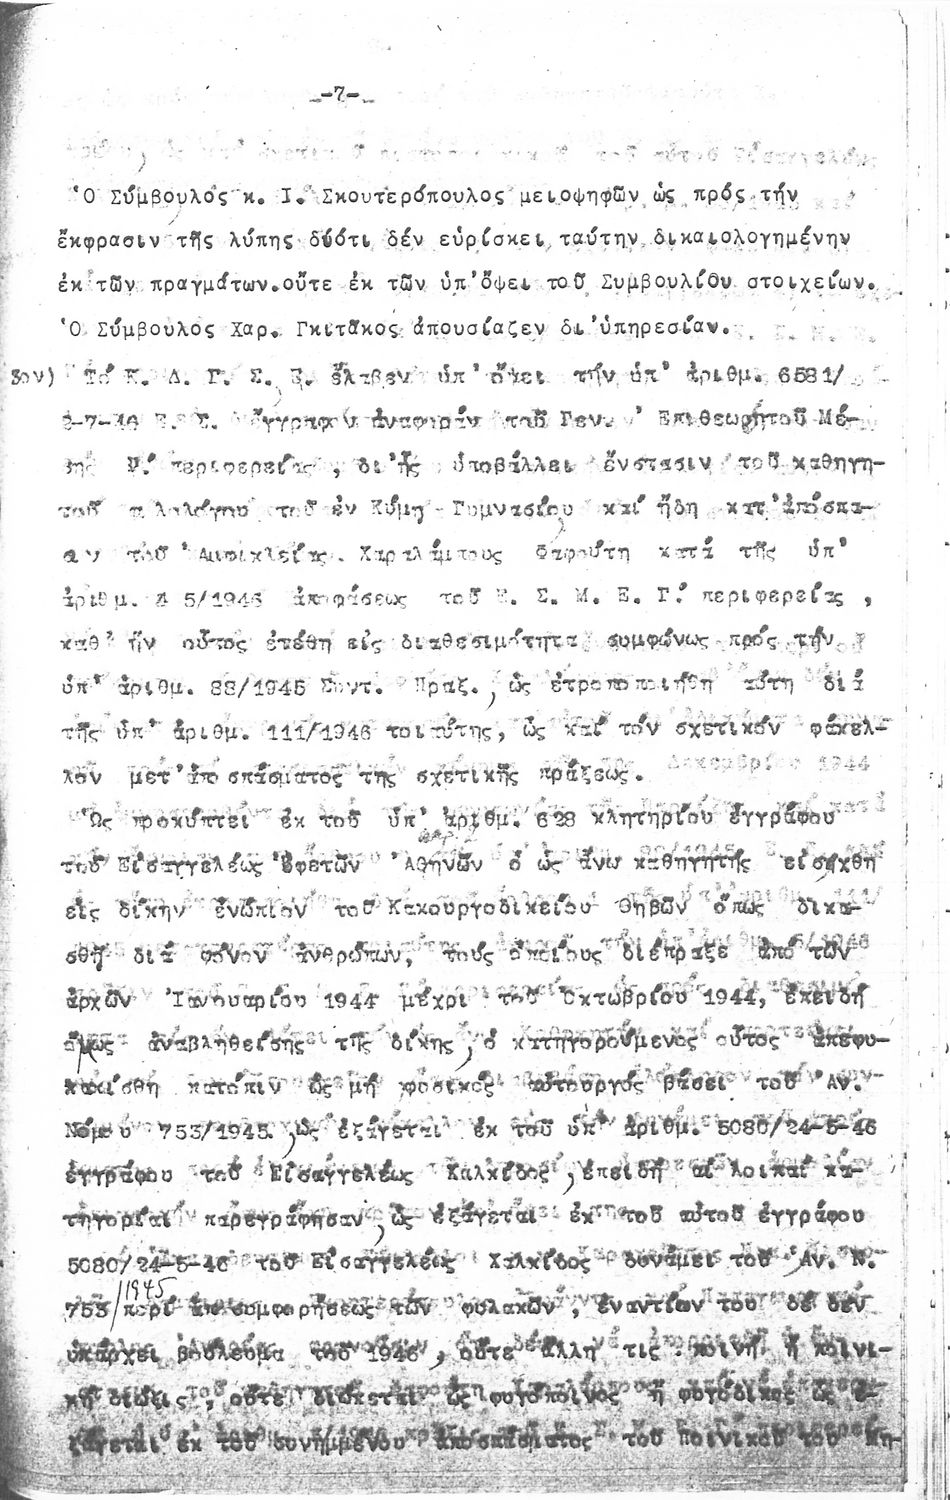 -7-
Ὁ Σύμβουλος κ. Ι. Σκουτερόπουλος μειοψηφῶν ὡς πρός τήν
ἔκφρασιν τῆς λύπης διότι δέν εὑρίσκει ταύτην δικαιολογημένην
ἐκ τῶν πραγμάτων.οὔτε ἐκ τῶν ὑπ'ὄψει τοῦ Συμβουλίου στοιχείων.
Ὁ Σύμβουλος Χαρ. Γκιτᾶκος ἀπουσίαζεν δι'ὑπηρεσίαν.
3ον) Τό Κ. Δ. Γ. Σ. Ε. ἔλαβεν ὑπ' ὄψει τήν ὑπ' ἀριθμ. 6581/
2-7-46 Ε.Σ. ἔγγραφον ἀναφοράν τοῦ Γεν. Ἐπιθεωρητοῦ Μέ-
σης περιφερείας, δι'ἧς ὑποβάλλει ἔνστασιν τοῦ καθηγη-
τοῦ φιλολόγου τοῦ ἐν Κύμῃ Γυμνασίου καί ἤδη κατ'ἀπόσπα-
σιν τοῦ Ἀμφικλείας Χαραλάμπους Φαφούτη κατά τῆς ὑπ'
ἀριθμ. 5/1946 ἀποφάσεως τοῦ Σ. Μ. Ε. Γ.' περιφερείας,
καθ' ἥν οὗτος ἐτέθη εἰς διαθεσιμότητα συμφώνως πρός τήν
ὑπ' ἀριθμ. 88/1945 Συντ. Πραξ., ὡς ἐτροποποιήθη αὕτη διά
τῆς ὑπ' ἀριθμ. 111/1946 τοιαύτης, ὡς καί τόν σχετικόν φάκελ-
λον μετ'ἀποσπάσματος τῆς σχετικῆς πράξεως.
Ὡς προκύπτει ἐκ τοῦ ὑπ' ἀριθμ. 628 κλητηρίου ἐγγράφου
τοῦ Εἰσαγγελέως Ἐφετῶν Ἀθηνῶν ὁ ὡς ἄνω καθηγητής εἰσήχθη
εἰς δίκην ἐνώπιον τοῦ Κακουργοδικείου Θηβῶν ὅπως δικα-
σθῇ διά φόνον ἀνθρώπων, τούς ὁποίους διέπραξε ἀπό τῶν
ἀρχῶν Ἰανουαρίου 1944 μέχρι τοῦ Ὀκτωβρίου 1944, ἐπειδή
ὅμως ἀναβληθείσης τῆς δίκης, ὁ κατηγορούμενος οὗτος ἀπεφυ-
λακίσθη κατόπιν ὡς μή φυσικός αὐτουργός βάσει τοῦ Ἀν.
Νόμου 753/1945, ὡς ἐξάγεται ἐκ τοῦ ὑπ' ἀριθμ. 5080/24-5-46
ἐγγράφου τοῦ Εἰσαγγελέως Χαλκίδος, ἐπειδή αἱ λοιπαί κα-
τηγορίαι παρεγράφησαν, ὡς ἐξάγεται ἐκ τοῦ αὐτοῦ ἐγγράφου
5080/24-5-46 τοῦ Εἰσαγγελέως Χαλκίδος δυνάμει τοῦ Ἀν. Ν.
753/1945 περί ἀποσυμφορήσεως τῶν φυλακῶν, ἐναντίον του δέ δέν
ὑπάρχει βούλευμα τοῦ 1946, οὔτε ἄλλη τις ποινή ἤ ποινι-
κή δίωξις, οὔτε διώκεται ὡς φυγόποινος ἤ φυγόδικος ὡς ἐ-
ξάγεται ἐκ τοῦ συνημμένου ἀποσπάσματος τοῦ ποινικοῦ του Μη-